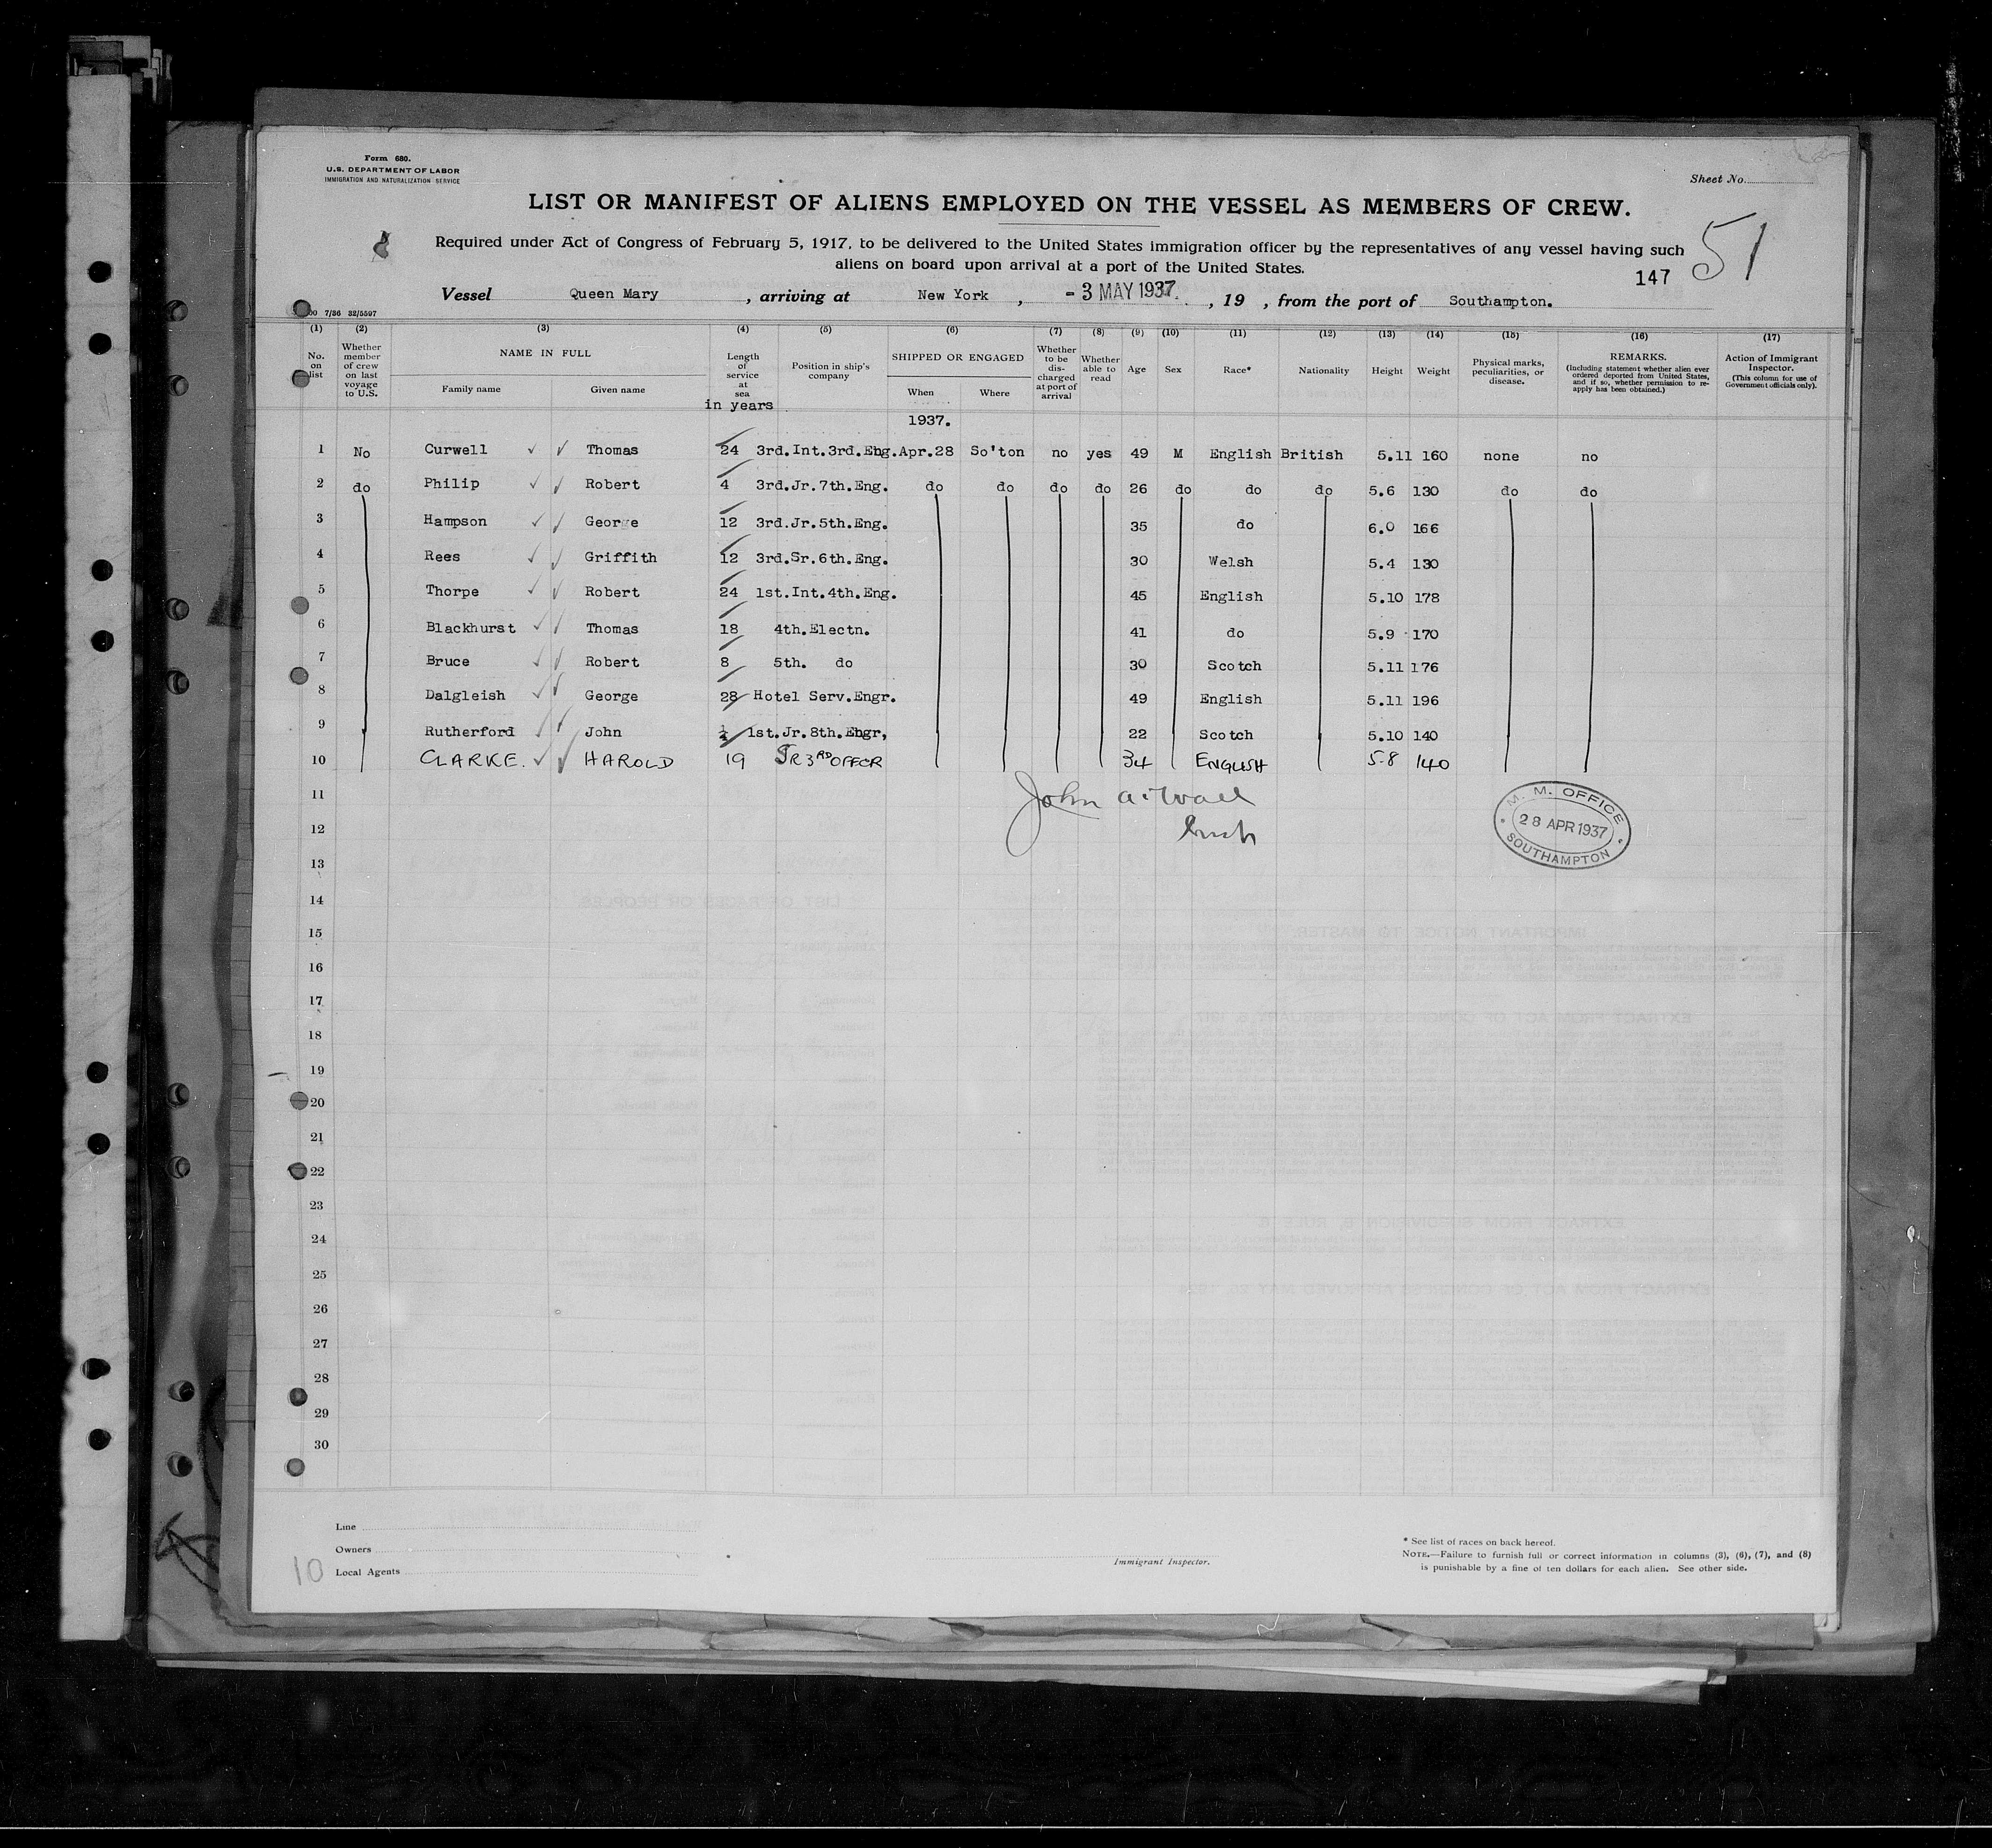 Form 680.
U.S. DEPARTMENT OF LABOR
IMMIGRATION AND NATURALIZATION SERVICE
Sheet No.
LIST OR MANIFEST OF ALIENS EMPLOYED ON THE VESSEL AS MEMBERS OF CREW.
51
Required under Act of Congress of February 5, 1917, to be delivered to the United States immigration officer by the representatives of any vessel having such
aliens on board upon arrival at a port of the United States.
147
Vessel Queen Mary, arriving at New York, - 3 MAY 1937, 19 , from the port of Southampton.
7/36 32/5597
(1) (2) (3) (4) (5) (6) (7) (8) (9) (10) (11) (12) (13) (14) (15) (16) (17)
No. on list
Whether member of crew on last voyage to U.S.
NAME IN FULL
Family name Given name
Length of service at sea
in years
Position in ship's company
SHIPPED OR ENGAGED
When Where
Whether to be discharged at port of arrival
Whether able to read
Age
Sex
Race*
Nationality
Height
Weight
Physical marks, peculiarities, or disease.
REMARKS.
(Including statement whether alien ever ordered deported from United States, and if so, whether permission to reapply has been obtained.)
Action of Immigrant Inspector.
(This column for use of Government officials only).
1937.
1 No Curwell Thomas 24 3rd.Int.3rd.Eng. Apr.28 So'ton no yes 49 M English British 5.11 160 none no
2 do Philip Robert 4 3rd.Jr.7th.Eng. do do do do 26 do do do 5.6 130 do do
3 Hampson George 12 3rd.Jr.5th.Eng. 35 do 6.0 166
4 Rees Griffith 12 3rd.Sr.6th.Eng. 30 Welsh 5.4 130
5 Thorpe Robert 24 1st.Int.4th.Eng. 45 English 5.10 178
6 Blackhurst Thomas 18 4th.Electn. 41 do 5.9 170
7 Bruce Robert 8 5th. do 30 Scotch 5.11 176
8 Dalgleish George 28 Hotel Serv.Engr. 49 English 5.11 196
9 Rutherford John 1st.Jr.8th.Engr, 22 Scotch 5.10 140
10 CLARKE. HAROLD 19 JR 3RD OFFCR 34 ENGLISH 5-8 140
11
John
12
M. M. OFFICE
28 APR 1937
SOUTHAMPTON
13
14
15
16
17
18
19
20
21
22
23
24
25
26
27
28
29
30
Line
Owners
Local Agents
10
Immigrant Inspector.
* See list of races on back hereof.
NOTE.—Failure to furnish full or correct information in columns (3), (6), (7), and (8)
is punishable by a fine of ten dollars for each alien. See other side.